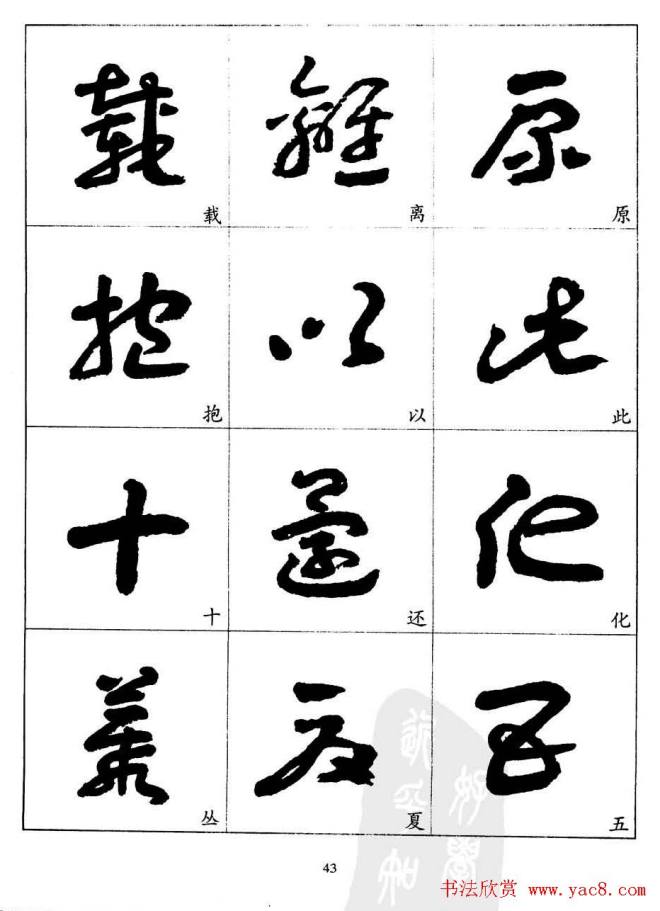 載 離 原
载 离 原
抱 以 此
抱 以 此
十 還 化
十 还 化
叢 夏 五
丛 夏 五
43
书法欣赏 www.yac8.com